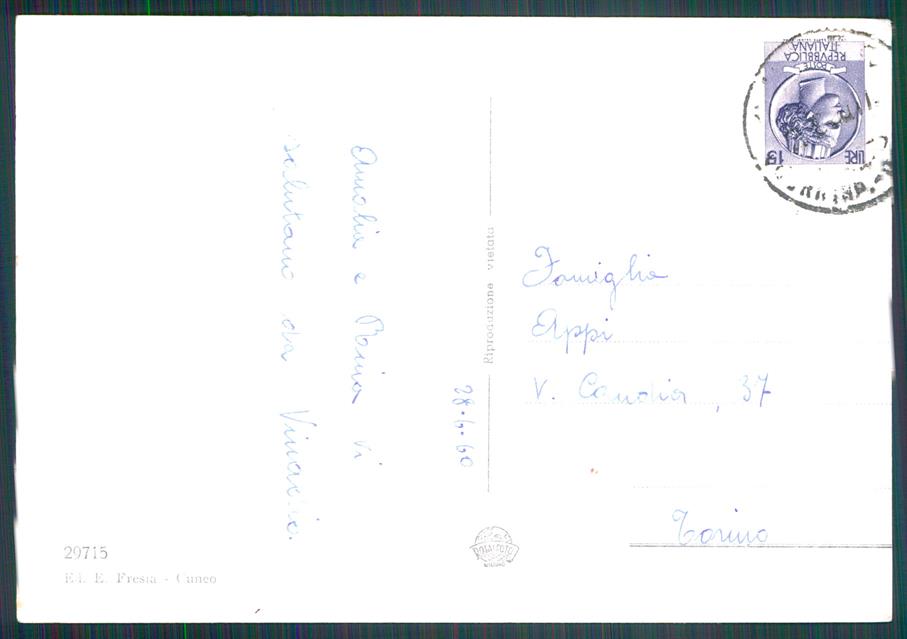 Amalia e Maria vi
salutano da Vinadio.
28.6.60
Riproduzione vietata
REPVBBLICA
ITALIANA
POSTE
LIRE 15
Famiglia
Appi
V. Candia, 37
Torino
29715
Ed. E. Fresia - Cuneo